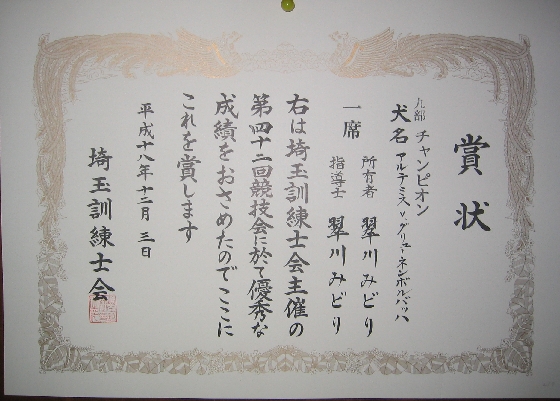 賞状
九部 チャンピオン
犬名 アルテミス V.グリューネンボルバッハ
一席
所有者 翠川みどり
指導士 翠川みどり
右は埼玉訓練士会主催の
第四十二回競技会に於て優秀な
成績をおさめたのでここに
これを賞します
平成十八年十二月三日
埼玉訓練士会